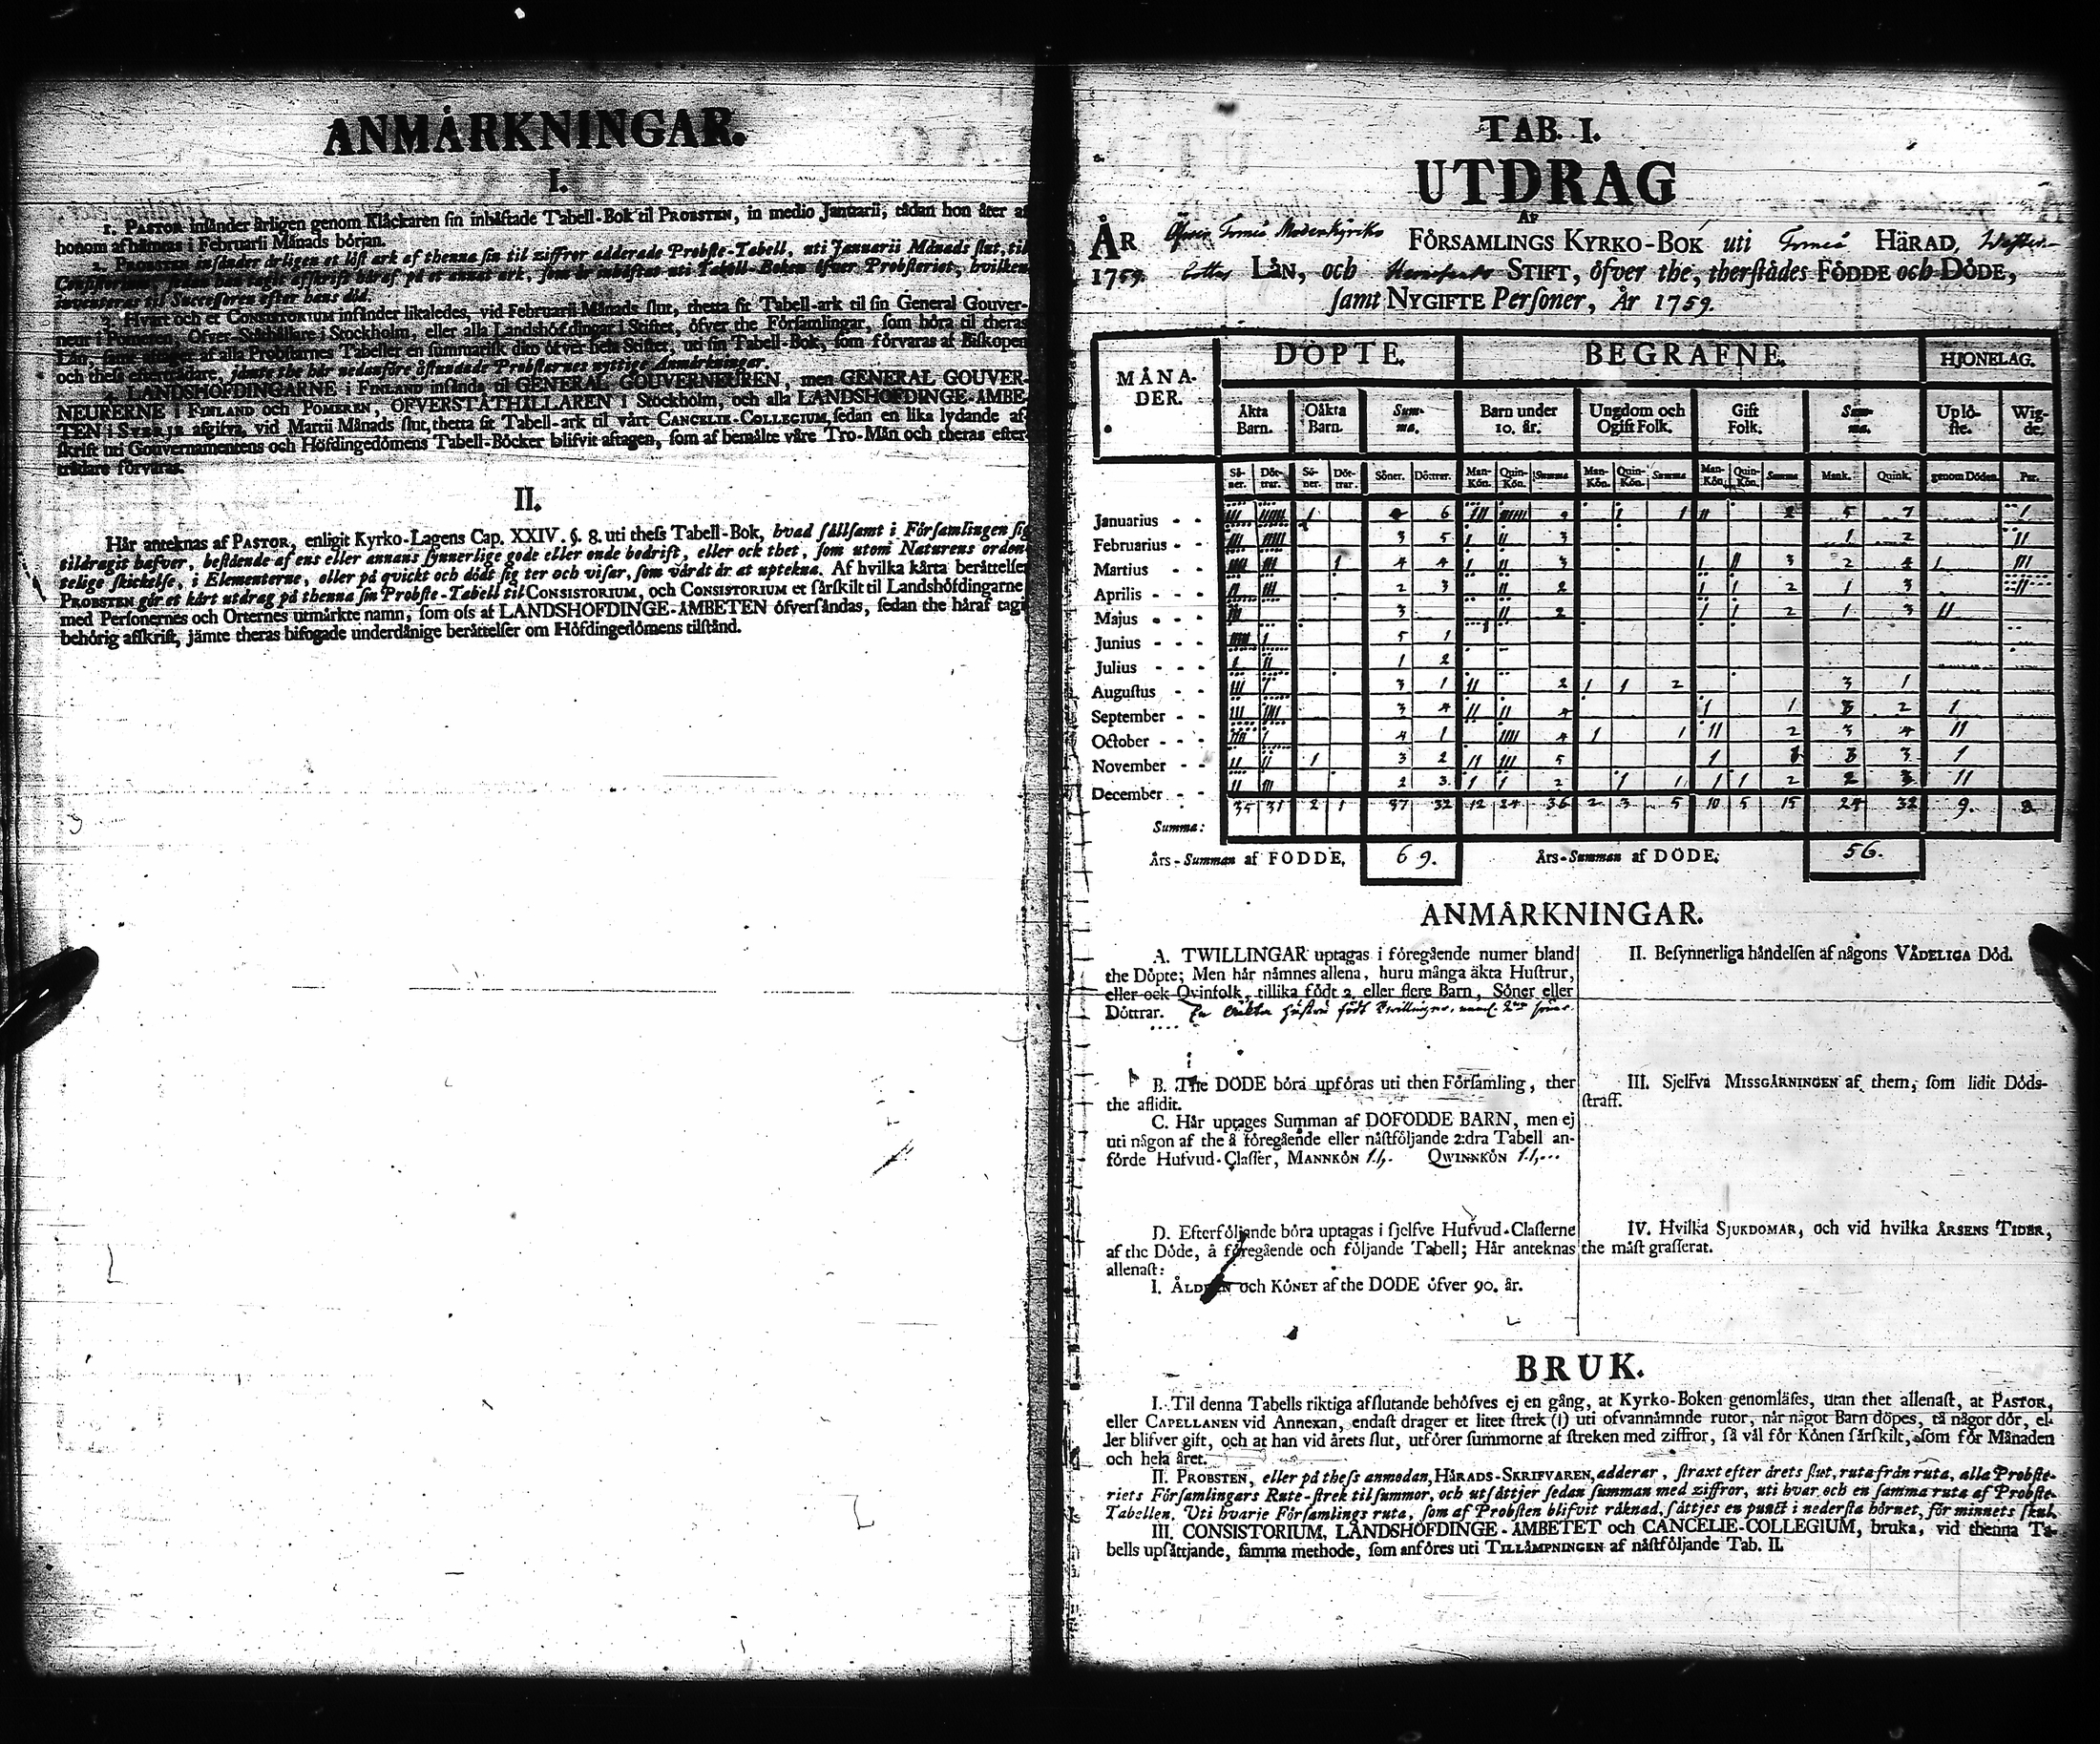 ANMÄRKNINGAR.
I.
1. PASTOR insänder årligen genom Klåckaren sin inhäftade Tabell-Bok til PROBSTEN, in medio Januarii, tådan hon åter af
honom afhämtas i Februarii Månads början.
2. PROBSTEN insänder årligen et löst ark af thenna sin til ziffror adderade Probste-Tabell, uti Januarii Månads slut, til
Consistorium, sedan han tagit afskrift häraf på et annat ark, som är inhäftat uti Tabell-Boken öfver Probsteriet, hvilken
inventeras til Successoren efter hans död.
3. Hvart och et CONSISTORIUM insänder likaledes, vid Februarii Månads slut, thetta sit Tabell-ark til sin General Gouver-
neur i Pomeren, Öfver-Ståthållare i Stockholm, eller alla Landshöfdingar i Stiftet, öfver the Församlingar, som höra til theras
Län, samt aftager af alla Probstarnes Tabeller en summarisk dito öfver hela Stiftet, uti sin Tabell-Bok, som förvaras af Biskopen
och thess efterträdare, jämte the här nedanföre åstundade Probstarnes nyttige Anmärkningar.
4. LANDSHÖFDINGARNE i FINLAND insända til GENERAL GOUVERNEUREN, men GENERAL GOUVER-
NEURERNE i FINLAND och POMEREN, ÖFVERSTÅTHÅLLAREN i Stockholm, och alla LANDSHÖFDINGE-ÄMBE-
TEN i SVERJE afgifva, vid Martii Månads slut, thetta sit Tabell-ark til vårt CANCELIE-COLLEGIUM, sedan en lika lydande af-
skrift uti Gouvernamentens och Höfdingedömens Tabell-Böcker blifvit aftagen, som af bemälte våre Tro-Män och theras efter-
trädare förvaras.
II.
Här anteknas af PASTOR, enligit Kyrko-Lagens Cap. XXIV. §. 8. uti thess Tabell-Bok, hvad sällsamt i Församlingen sig
tildragit hafver, bestående af ens eller annans synnerlige gode eller onde bedrift, eller ock thet, som utom Naturens orden-
telige skickelse, i Elementerne, eller på qvickt och dödt sig ter och visar, som värdt är at uptekna. Af hvilka kårta berättelser
PROBSTEN gör et kårt utdrag på thenna sin Probste-Tabell til CONSISTORIUM, och CONSISTORIUM et särskilt til Landshöfdingarne
med Personernes och Orternes utmärkte namn, som oss af LANDSHÖFDINGE-ÄMBETEN öfversändas, sedan the häraf tagit
behörig afskrift, jämte theras bifogade underdånige berättelser om Höfdingedömens tilstånd.
TAB. I.
UTDRAG
AF
ÅR Öfwer Torneå Moderkyrko FÖRSAMLINGS KYRKO-BOK uti Torneå HÄRAD, Wäster-
1759. botten LÄN, och STIFT, öfver the, therstädes FÖDDE och DÖDE,
samt NYGIFTE Personer, År 1759.
MÅNA-DER. DÖPTE. BEGRAFNE. HJONELAG.
Äkta Barn. Oäkta Barn. Summa. Barn under 10. år. Ungdom och Ogift Folk. Gift Folk. Summa. Uplöste. Wigde.
Söner. Döttrar. Söner. Döttrar. Söner. Döttrar. Man-Kön. Quin-Kön. Summa Man-Kön. Quin-Kön. Summa Man-Kön. Quin-Kön. Summa Mank. Quink. genom Döden. Par.
Januarius - - 6 9 1 2 5 7
Februarius - - 3 5 3 1 2
Martius - - 4 4 3 3 2 4
Aprilis - - 2 3 2 2 1 3
Majus - - 3 2 2 1 3
Junius - - 5 1
Julius - - 1 2
Augustus - - 3 1 2 2 3 1
September - - 3 4 4 1 3 2
October - - 4 1 4 1 2 3 4
November - - 3 2 5 3 3
December - - 2 3 2 1 2 2 3
Summa: 35 31 2 1 37 32 12 24 36 2 3 5 10 5 15 24 32 9.
Års-Summan af FÖDDE, 69. Års-Summan af DÖDE: 56.
ANMÄRKNINGAR.
A. TWILLINGAR uptagas i föregående numer bland
the Döpte; Men här nämnes allena, huru många äkta Hustrur,
eller ock Qvinfolk, tillika födt 2. eller flere Barn, Söner eller
Döttrar. En ächta hustru födt twillingar,
B. The DÖDE böra upföras uti then Församling, ther
the aflidit.
C. Här uptages Summan af DÖFÖDDE BARN, men ej
uti någon af the å föregående eller nästföljande 2:dra Tabell an-
förde Hufvud-Classer, MANNKÖN 1.1,. QWINNKÖN 1.1,...
D. Efterföljande böra uptagas i sjelfve Hufvud-Classerne
af the Döde, å föregående och följande Tabell; Här anteknas
allenast:
I. ÅLDREN och KÖNET af the DÖDE öfver 90. år.
II. Besynnerliga händelsen af någons VÅDELIGA Död.
III. Sjelfva MISSGÄRNINGEN af them, som lidit Döds-
straff.
IV. Hvilka SJUKDOMAR, och vid hvilka ÅRSENS TIDER,
the mäst grasserat.
BRUK.
I. Til denna Tabells riktiga afslutande behöfves ej en gång, at Kyrko-Boken genomläses, utan thet allenast, at PASTOR,
eller CAPELLANEN vid Annexan, endast drager et litet strek (1) uti ofvannämnde rutor, när något Barn döpes, tå någor dör, el-
ler blifver gift, och at han vid årets slut, utförer summorne af streken med ziffror, så väl för Könen särskilt, som för Månaden
och hela året.
II. PROBSTEN, eller på thess anmodan, HÄRADS-SKRIFVAREN, adderar, straxt efter årets slut, ruta från ruta, alla Probste-
riets Församlingars Rute-strek til summor, och utsättjer sedan summan med ziffror, uti hvar och en samma ruta af Probste-
Tabellen. Uti hvarje Församlings ruta, som af Probsten blifvit räknad, sättjes en punct i nedersta hörnet, för minnets skul.
III. CONSISTORIUM, LANDSHÖFDINGE-ÄMBETET och CANCELIE-COLLEGIUM, bruka, vid thenna Ta-
bells upsättjande, samma methode, som anföres uti TILLÄMPNINGEN af nästföljande Tab. II.